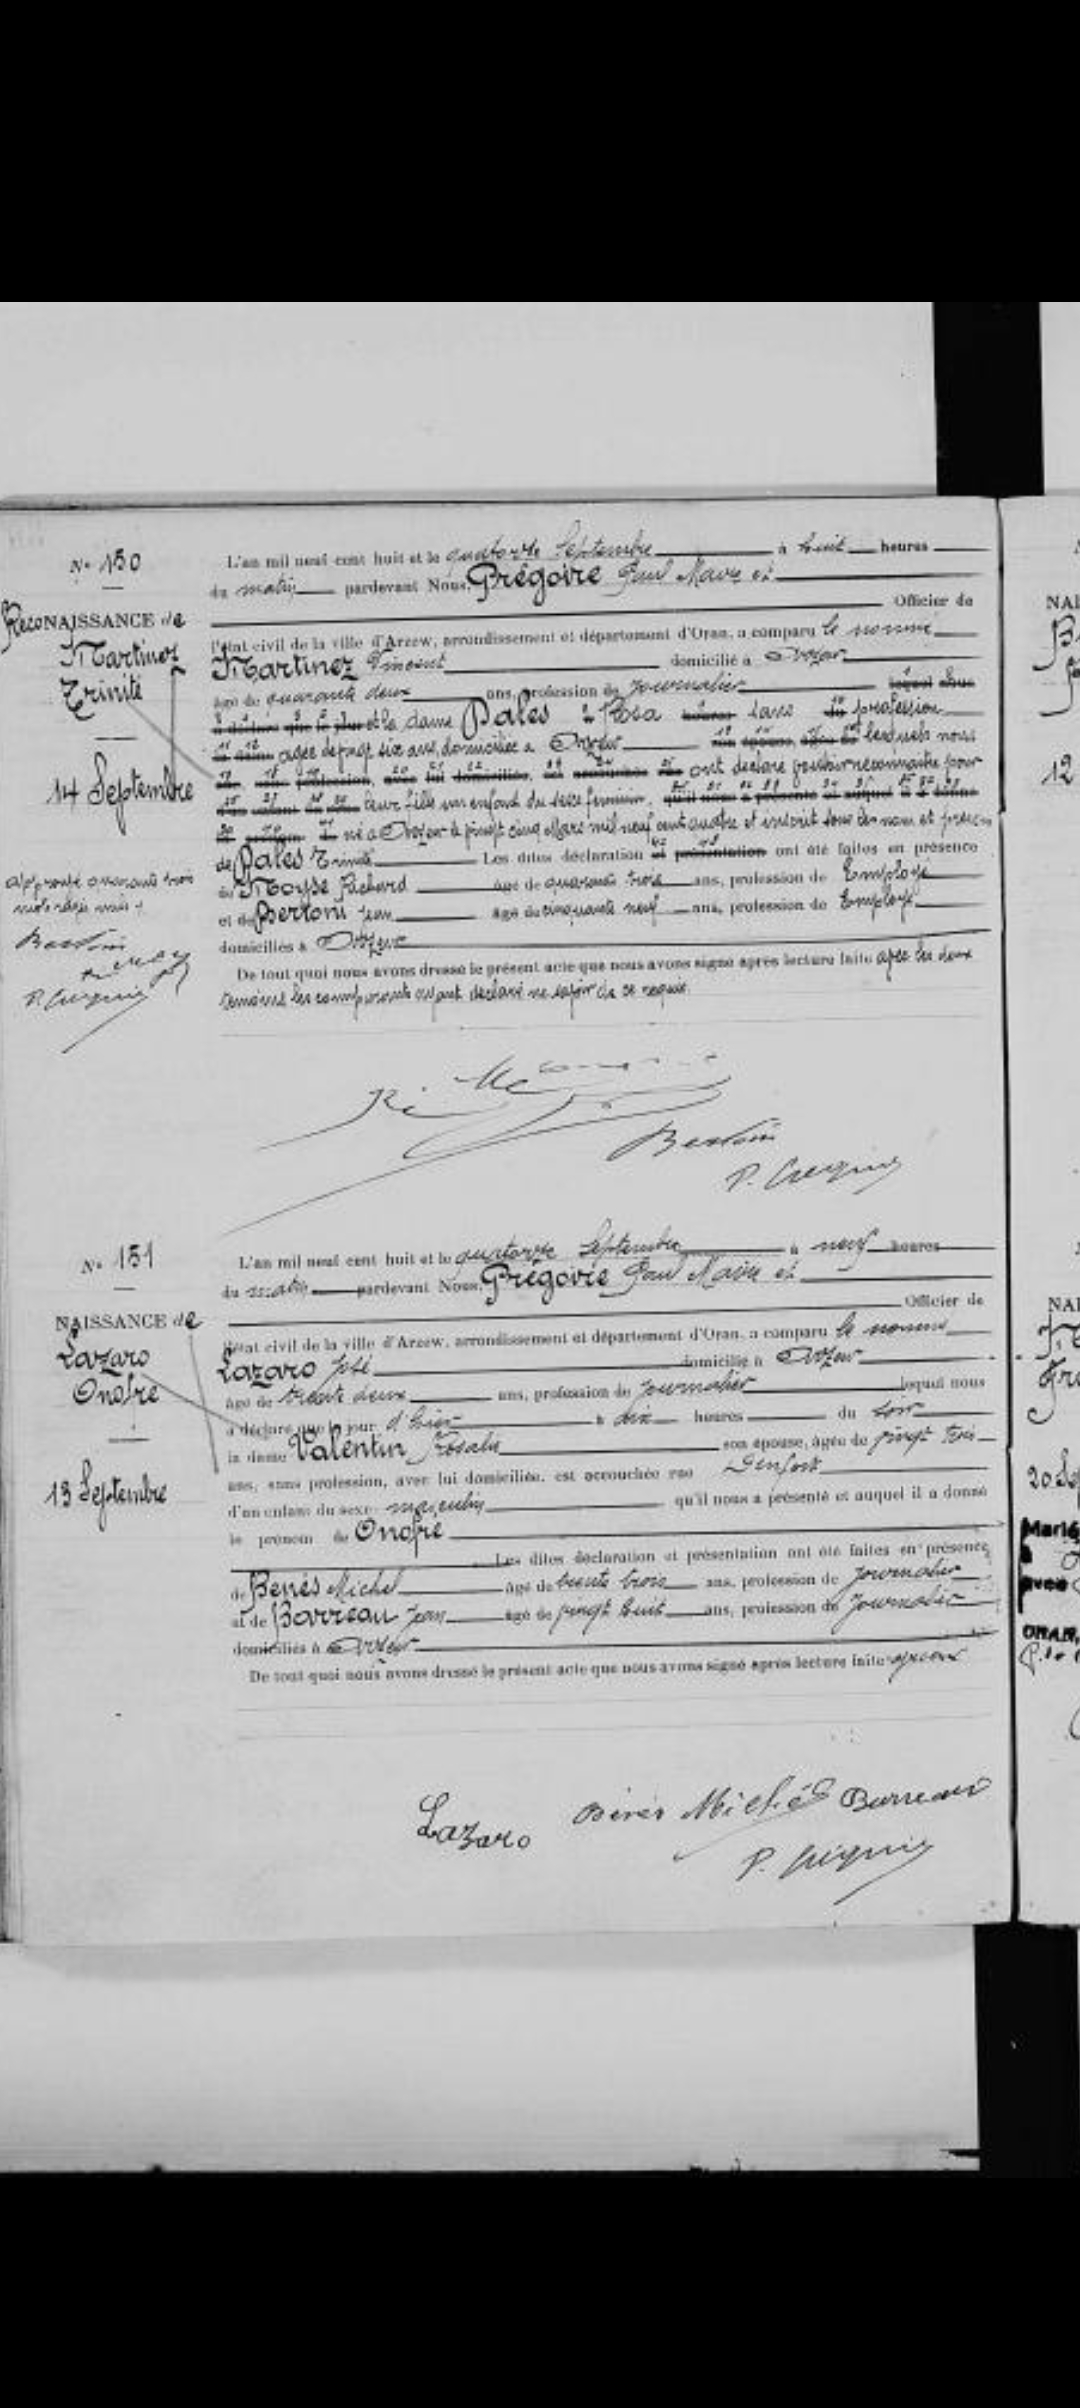 N° 150
RECONNAISSANCE de
Martinez
Trinité
14 Septembre
approuvé quarante trois
mots rayés nuls
Bertoni
L'an mil neuf cent huit et le quatorze Septembre à huit heures
du matin pardevant Nous, Grégoire Paul Maire et
Officier de
l'état civil de la ville d'Arzew, arrondissement et département d'Oran, a comparu le nommé
Martinez Vincent domicilié à Arzew
âgé de quarante deux ans, profession de Journalier
et la dame Pales Rosa sans profession
agée de vingt six ans, domiciliée a Arzew lesquels nous
ont declaré reconnaitre pour
leur fille un enfant du sexe feminin,
né a Arzew le vingt cinq Mars mil neuf cent quatre et inscrit sous les nom et prénom
de Pales Trinité Les dites déclaration et présentation ont été faites en présence
de Moyse Richard âgé de quarante trois ans, profession de Employé
et de Bertoni Jean âgé de cinquante neuf ans, profession de Employé
domiciliés à Arzew
De tout quoi nous avons dressé le présent acte que nous avons signé après lecture faite avec les deux
temoins les comparants ayant declaré ne savoir de ce requis.
Bertoni
N° 151
NAISSANCE de
Lazaro
Onofre
13 Septembre
L'an mil neuf cent huit et le quatorze Septembre à neuf heures
du matin pardevant Nous, Grégoire Paul Maire et
Officier de
l'état civil de la ville d'Arzew, arrondissement et département d'Oran, a comparu le nommé
Lazaro José domicilié à Arzew
âgé de trente deux ans, profession de Journalier lequel nous
a déclaré que le jour d'hier à dix heures du soir
la dame Valentin Rosalie son épouse, âgée de vingt trois
ans, sans profession, avec lui domiciliée, est accouchée rue Denfert
d'un enfant du sexe masculin qu'il nous a présenté et auquel il a donné
le prénom de Onofre
Les dites déclaration et présentation ont été faites en présence
de Benés Michel âgé de trente trois ans, profession de Journalier
et de Barreau Jean âgé de vingt huit ans, profession de Journalier
domiciliés à Arzew
De tout quoi nous avons dressé le présent acte que nous avons signé après lecture faite
Lazaro Benés Michel Barreau